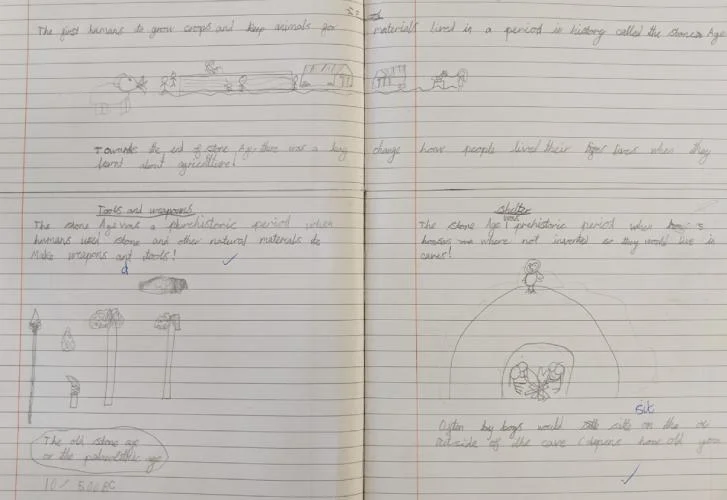 The first humans to grow crops and keep animals for materials lived in a period in history called the stone Age
Towards the end of stone Age there was a big change how people lived their lives when they
learnt about agriculture!
Tools and weapons
The stone Age was a prehistoric period when
humans used stone and other natural materials to
Make weapons and tools!
d
The old stone age
or the paleolithic age
shelter
was
The stone Age prehistoric period when
houses where not invented so they would live in
caves!
sit
Often boys would sit on the
outside of the cave (depens how old you